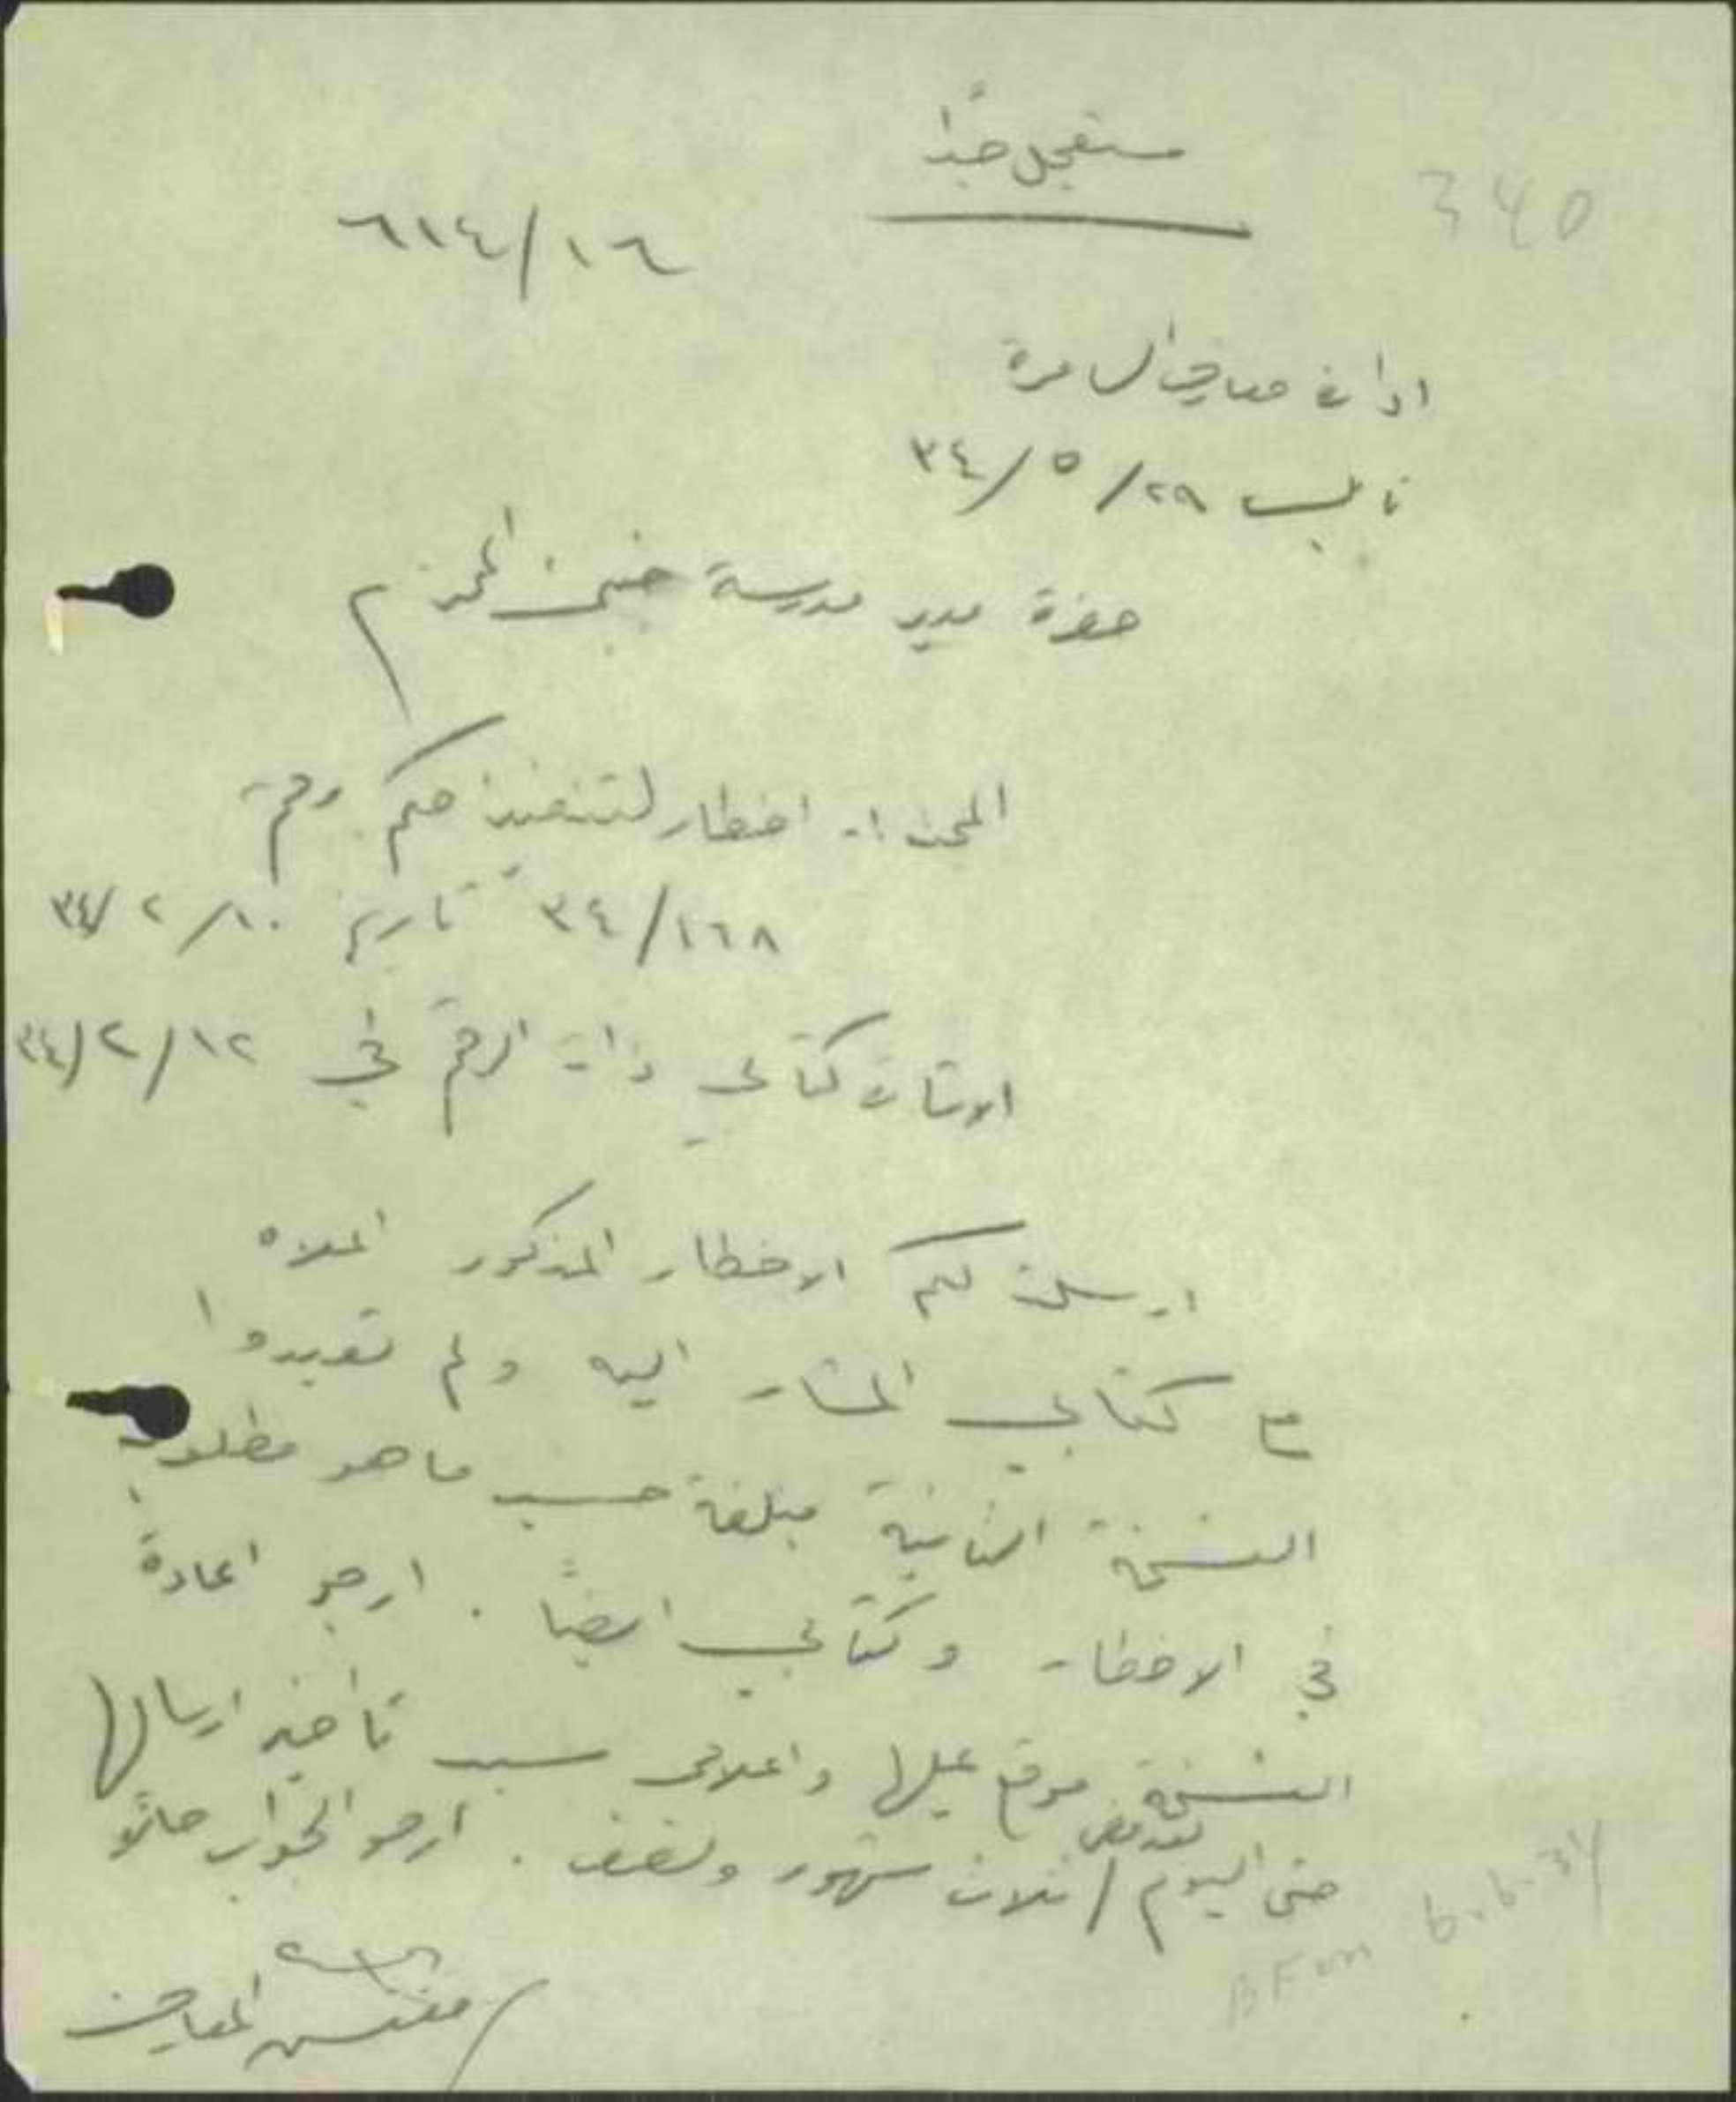 340
مستعجل جدًا
٦١٤/١٦
ادارة معارف السامرة
نابلس ٢٩/٥/٣٤
حضرة مدير مدرسة جنين المحترم
المبحث :- اخطار لتنفيذ حكم رقم
٣٤/١٦٨ تاريخ ١٠/٢/٣٤
الاشارة كتابي ذات الرقم في ١٢/٢/٣٤
ارسلت لكم الاخطار المذكور اعلاه
مع كتابي المشار اليه ولم تعيدوا
النسخة الثانية مبلغة حسب ما هو مطلوب
في الاخطار وكتابي ايضًا . ارجو اعادة
النسخة موقع عليها واعلامي سبب تأخير ارسالها
حتى اليوم / بعد مضي ثلاث شهور ونصف . ارجو الجواب حالًا
مفتش المعارف
BF on 6.6.34